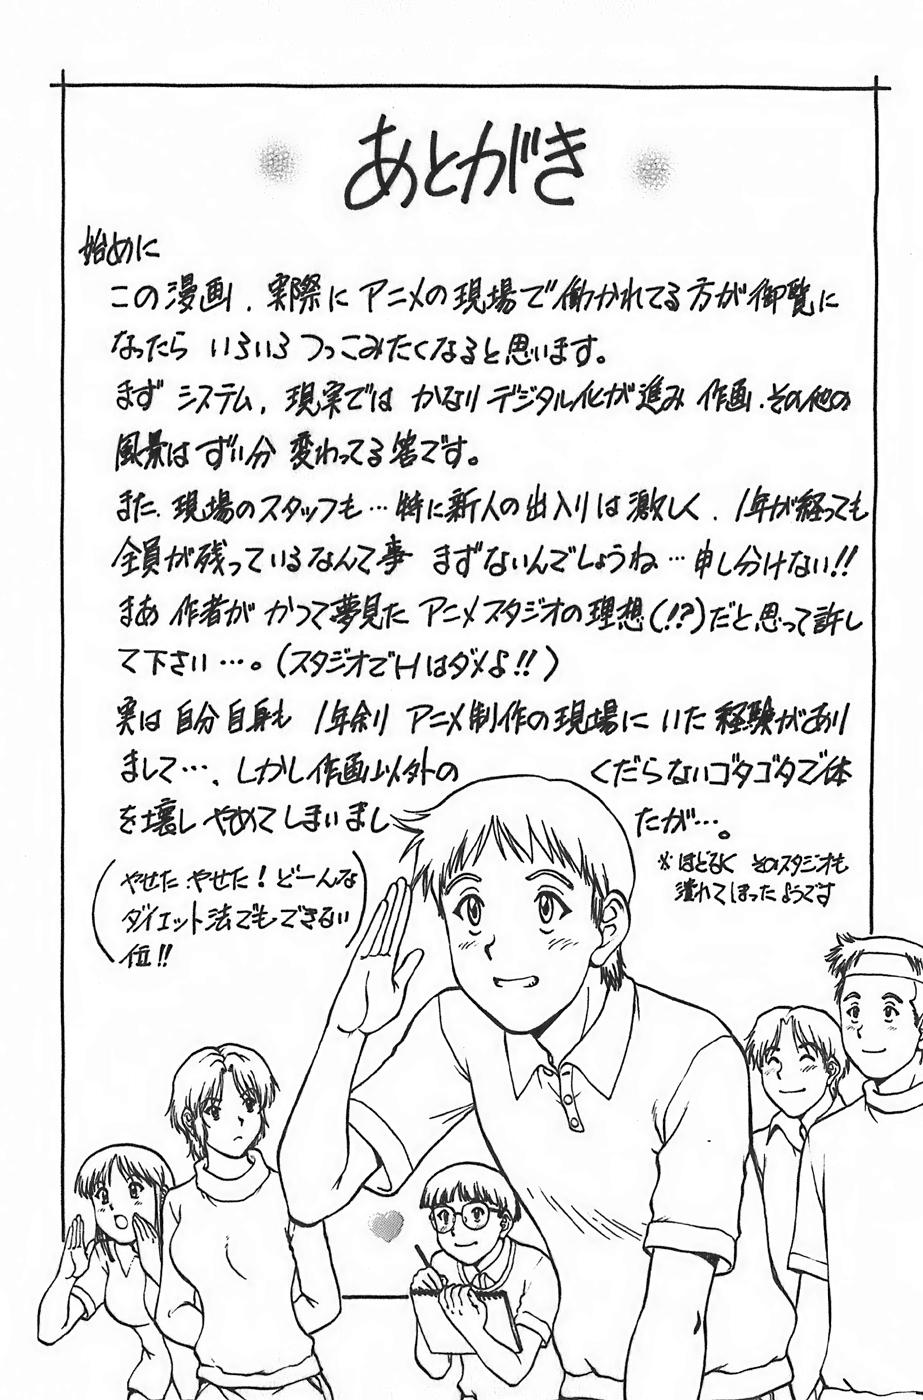 あとがき
始めに
この漫画、実際にアニメの現場で働かれてる方が御覧に
なったら いろいろ つっこみたくなると思います。
まず システム、現実では かなり デジタル化が進み 作画、その他の
風景は ずい分 変わってる筈です。
また、現場のスタッフも…特に新人の出入りは激しく、1年が経っても
全員が残っているなんて事 まずないんでしょうね…申し分けない!!
まあ 作者が かつて夢見た アニメスタジオの理想(!?)だと思って許し
て下さい…。(スタジオでHはダメよ!!)
実は 自分自身も 1年余り アニメ制作の現場に いた 経験があり
まして…、しかし作画以外の くだらないゴタゴタで体
を壊し やめてしまいまし たが…。
(やせた やせた! どーんな
ダイエット法でもできない
位!!)
※ほどなく そのスタジオも
潰れてしまったようです